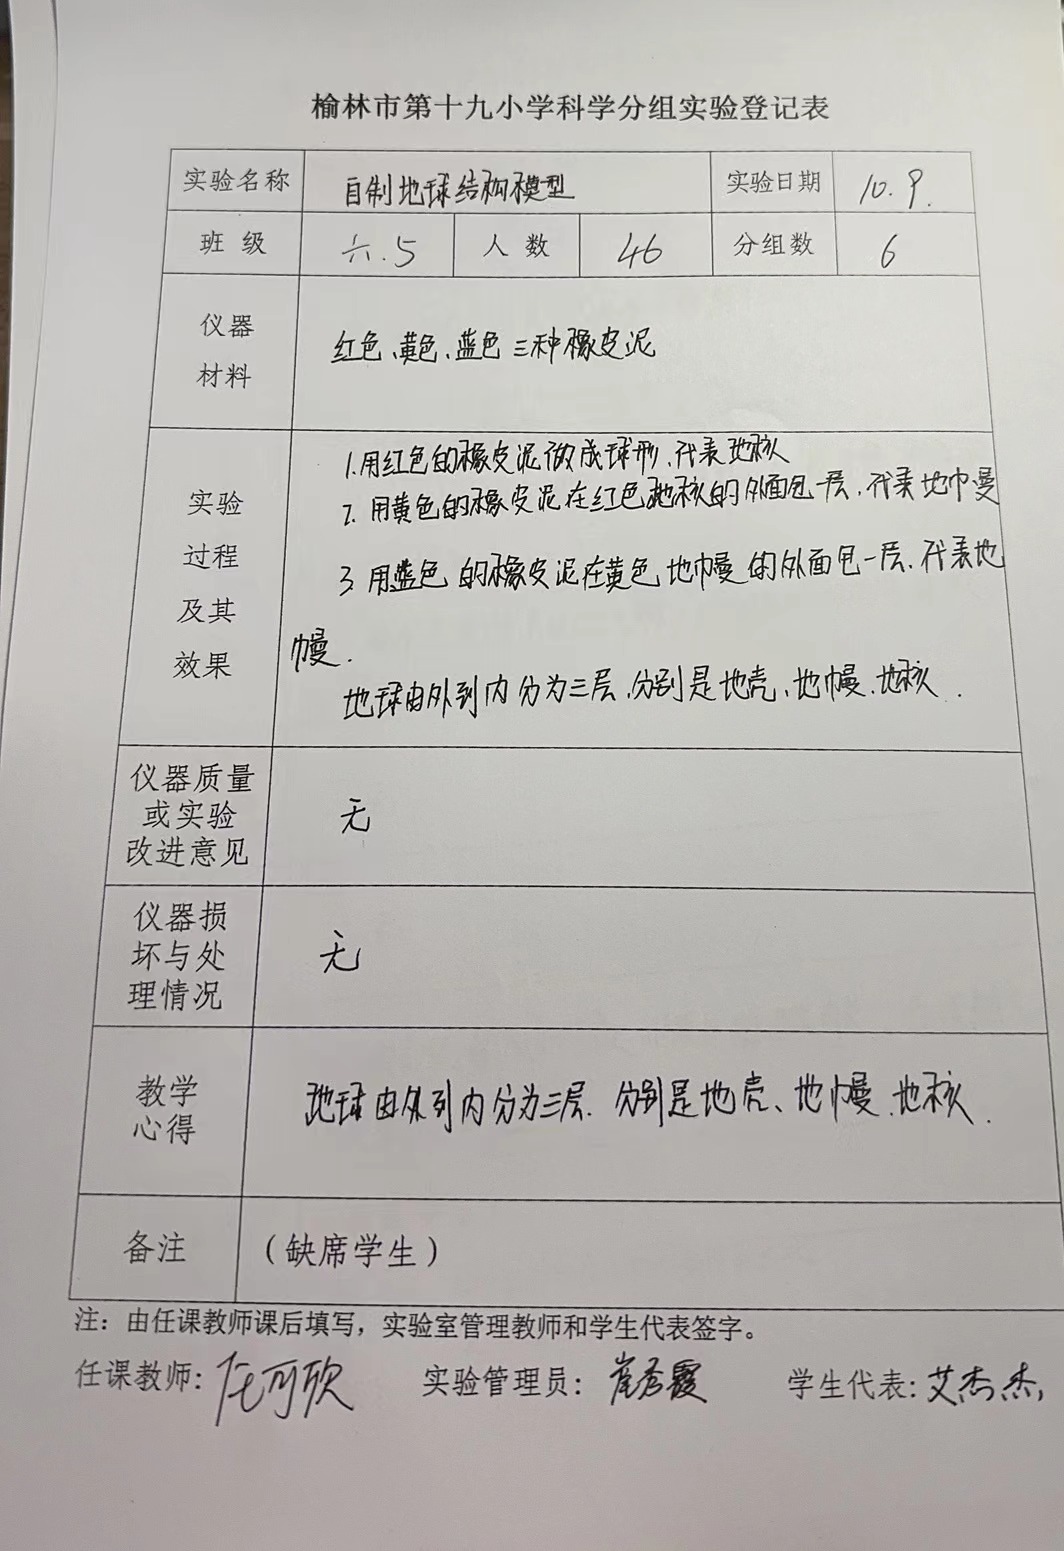 榆林市第十九小学科学分组实验登记表
实验名称 自制地球结构模型 实验日期 10.9.
班 级 六.5 人 数 46 分组数 6
仪器
材料
红色、黄色、蓝色三种橡皮泥
实验
过程
及其
效果
1.用红色的橡皮泥做成球形,代表地核
2. 用黄色的橡皮泥在红色地核的外面包一层,代表地巾曼
3 用蓝色的橡皮泥在黄色地幔的外面包一层.代表地
幔.
地球由外到内分为三层,分别是地壳、地幔、地核.
仪器质量
或实验
改进意见
无
仪器损
坏与处
理情况
无
教学
心得
地球由外到内分为三层.分别是地壳、地幔、地核.
备注 (缺席学生)
注:由任课教师课后填写,实验室管理教师和学生代表签字。
任课教师: 可欣 实验管理员: 崔秀霞 学生代表: 艾杰杰